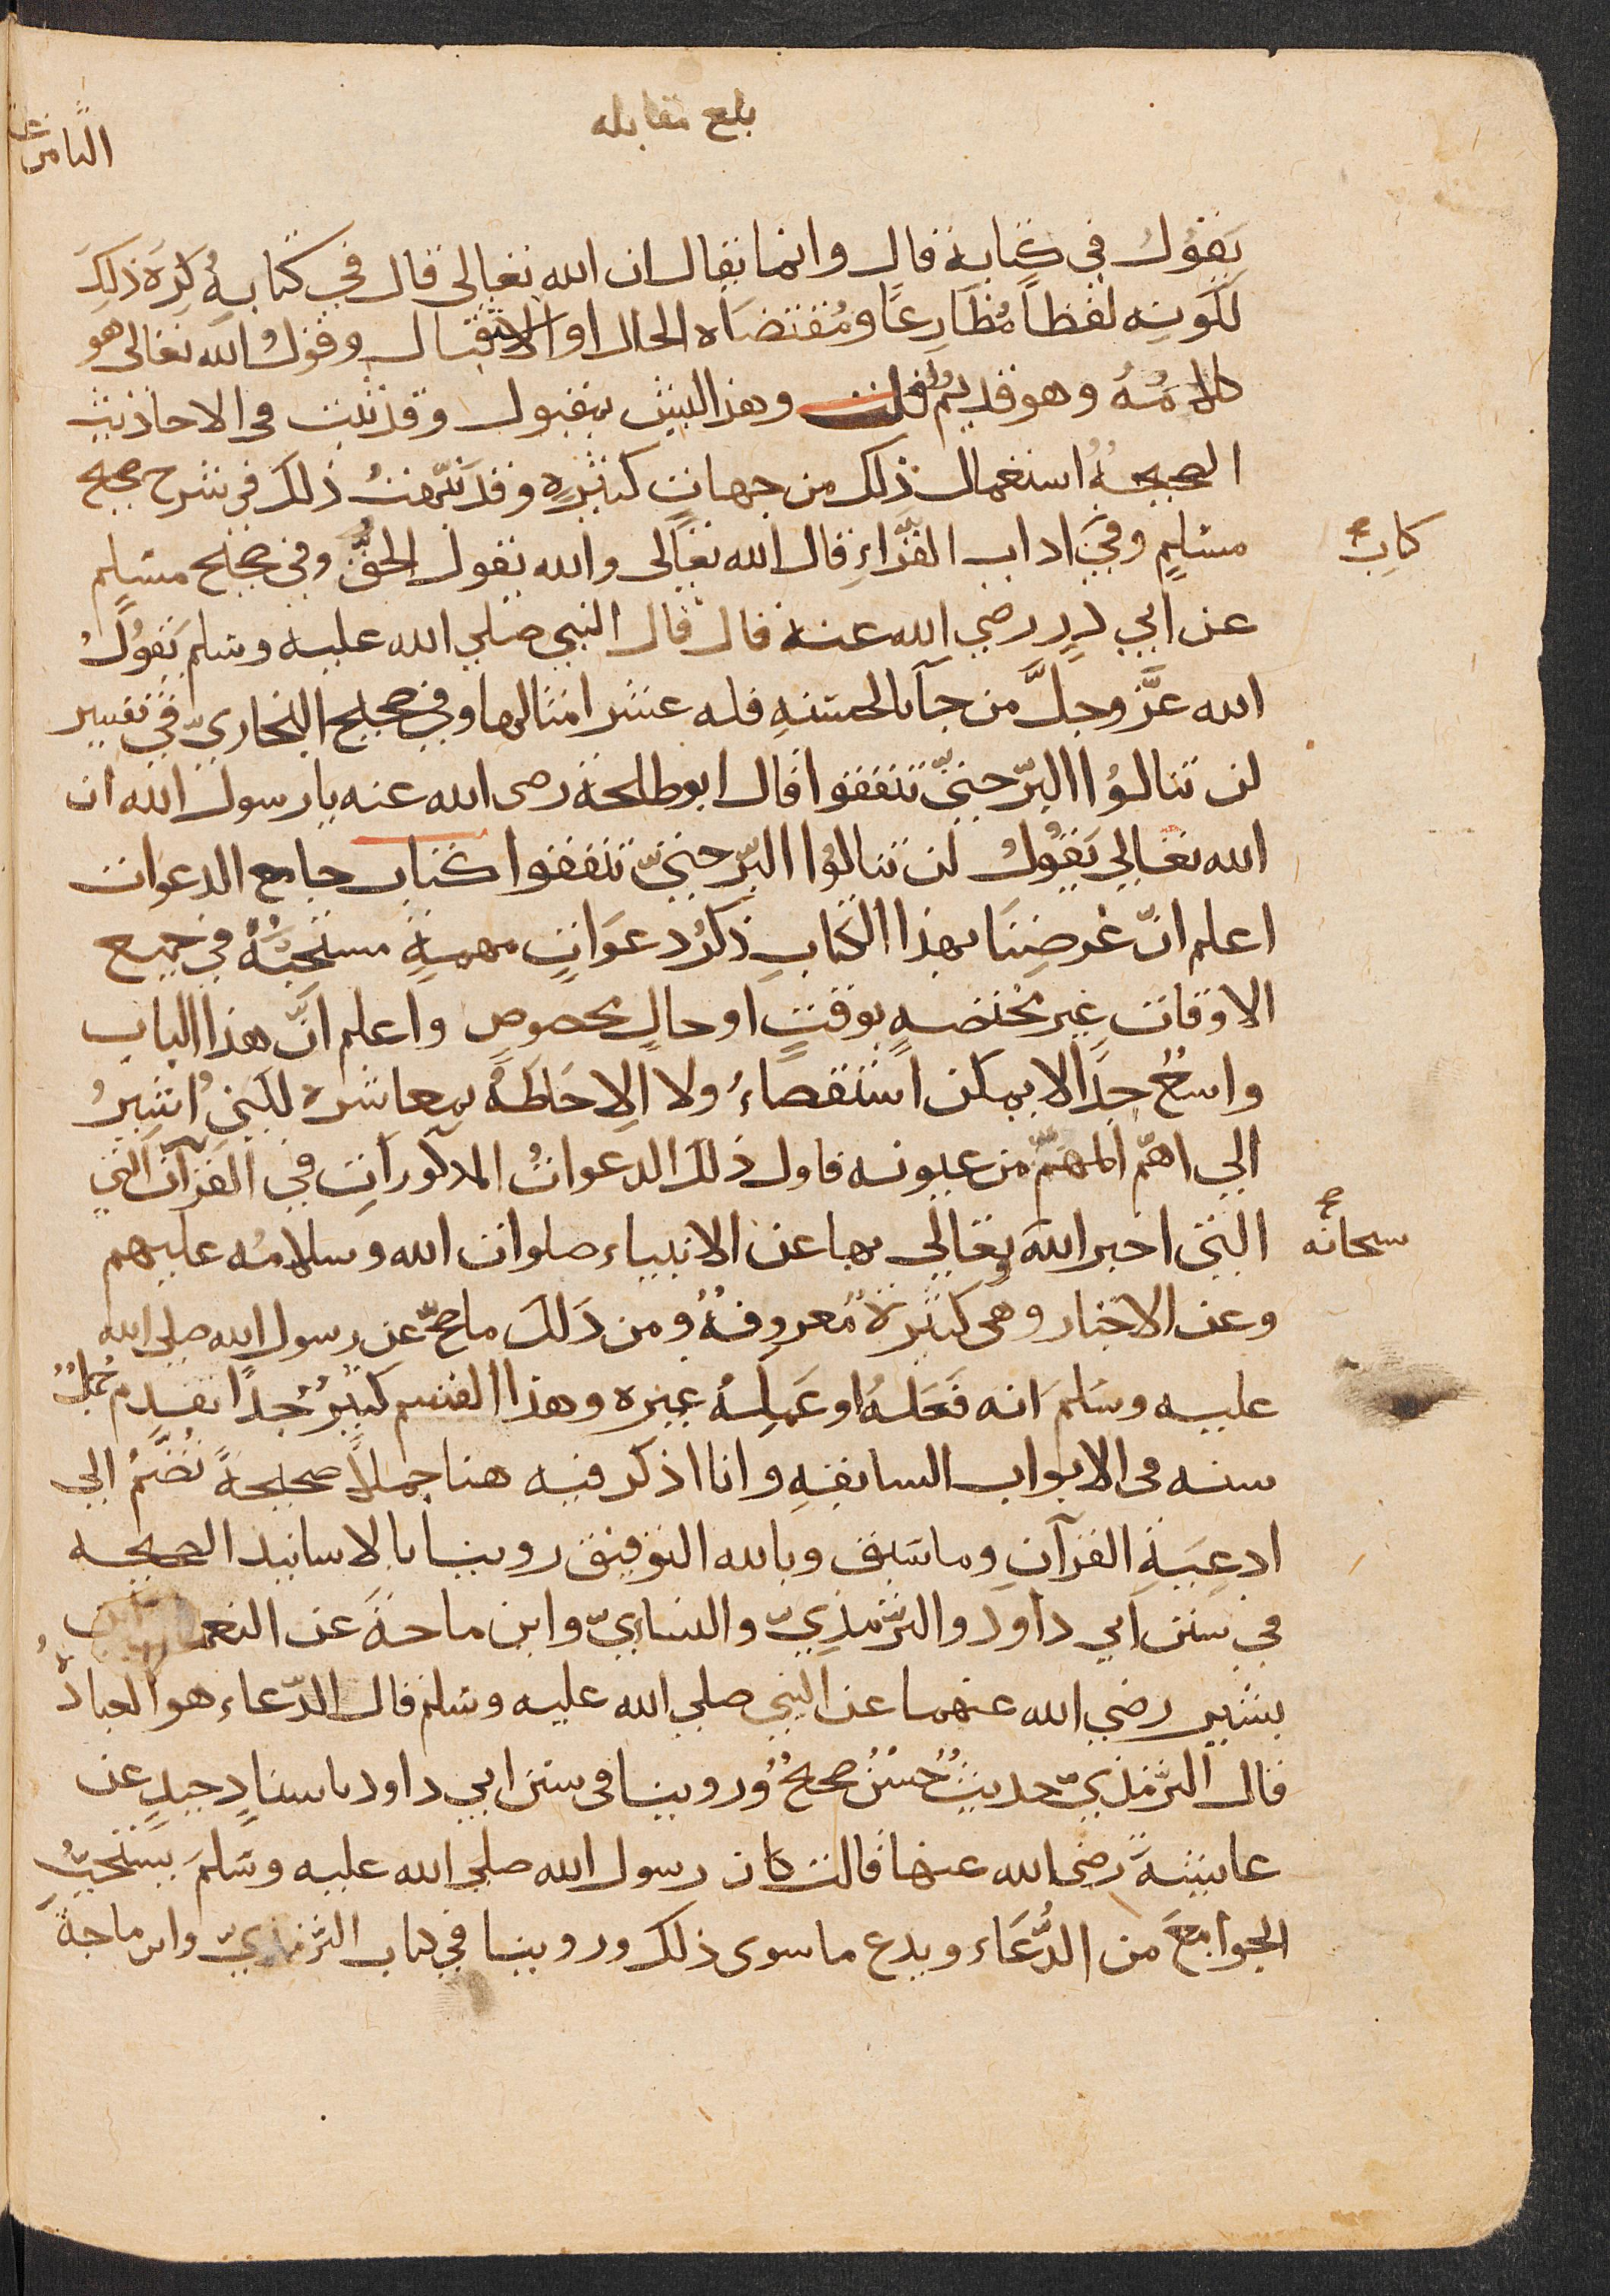 بلغ مقابله
الثامن عشر
يَقوُلُ في كتابه قال وانما يقال ان الله تعالى قال في كتابهِ كَرِهَ ذلك
لكونه لفظاً مُظَارِعًا ومُقتضَاه الحال او الاستقبال وقولُ الله تعالى هو
كلامُهُ وهو قديم قلت وهذا ليس بمقبول وقد ثبت في الاحاديث
الصحيحةُ استعمال ذلك من جهاتٍ كثيرهِ وقد نبّهتُ ذلك في شرح صحيح
مسْلمٍ وفي اداب القرّاءِ قال الله تعالى والله يقول الحقّ وفي صحيح مسْلمٍ
كتابِ صح
عن ابي ذرٍ رضي الله عنه قال قال النبي صلي الله عليه وسْلم يَقوُلُ
الله عزّ وجلَّ من جآ بالحسَنهِ فله عشر امثالها وفي صحيح البخاريّ في تفسير
لن تنالوُا البرّ حتيّ تنفقوا قال ابو طلحة رضى الله عنه يا رسول الله ان
الله تعالي يَقُولُ لن تنالوُا البرّ حتيّ تنفقوا كتاب جامع الدعوات
اعلم انّ غرضِنَا بهذا الكتابِ ذكرُ دعَوَاتٍ مهمهٍ مستحَبّةُ في جميع
الاوقات غير مُختصهٍ بوقتٍ او حالٍ مخصوص واعلم انَّ هذا الباب
واسعٌ جدًا لا يمكن استقصاءُ ولا الِاحَاطَهُ بمعاشره لكني اُشيرُ
الي اهمّ المهمّ من عيونه فاول ذلك الدعواتُ المذكوراتِ في القرآن التي
التي اخبر الله وتعالي بها عن الانبياء صلوات الله وسلامُه عليهم
سبحانه صح
وعن الاخيار وهى كثيرةٌ معروفهٌ ومن ذَلك ما صحّ عن رسول الله صلي الله
عليه وسَلمَ انه فَعَلهُ او عَمِلهُ غيره وهذا القسم كثيرٌ جدًا تقدم جملٌ
منه فى الابواب السابقهِ وانا اذكر فيه هنا جملاً صحيحةً تُضّمُ الي
ادعِيَةِ القرآنِ وما سَبق وبالله التوفيق روينا بالاسانيد الصحيحه
في سنن ابي داود والترّمذِيّ والنسايّ وابن ماجَةَ عن النعمان بن
بشير رضي الله عنهما عن النبي صلي الله عليه وسْلم قال الدّعاء هو العبادةُ
قال الترّمذيّ حديثٌ حُسنٌ صحيحٌ وُروينا فى سنن ابي داود باسنادٍ جيدٍ عن
عايشةَ رضى الله عنها قالت كان رسول الله صلي الله عليه وسَلمَ يستحبُّ
الجوامعَ من الدُّعَاء ويدع ما سوى ذلك وروينا في كتاب الترّمذيّ وابن ماجةَ